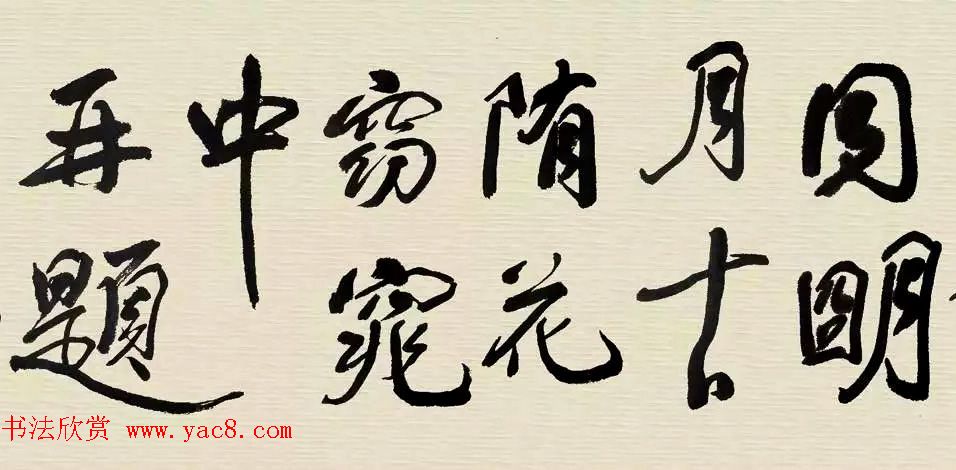 圓明
月古
随花
窈窕
中
再題
书法欣赏 www.yac8.com